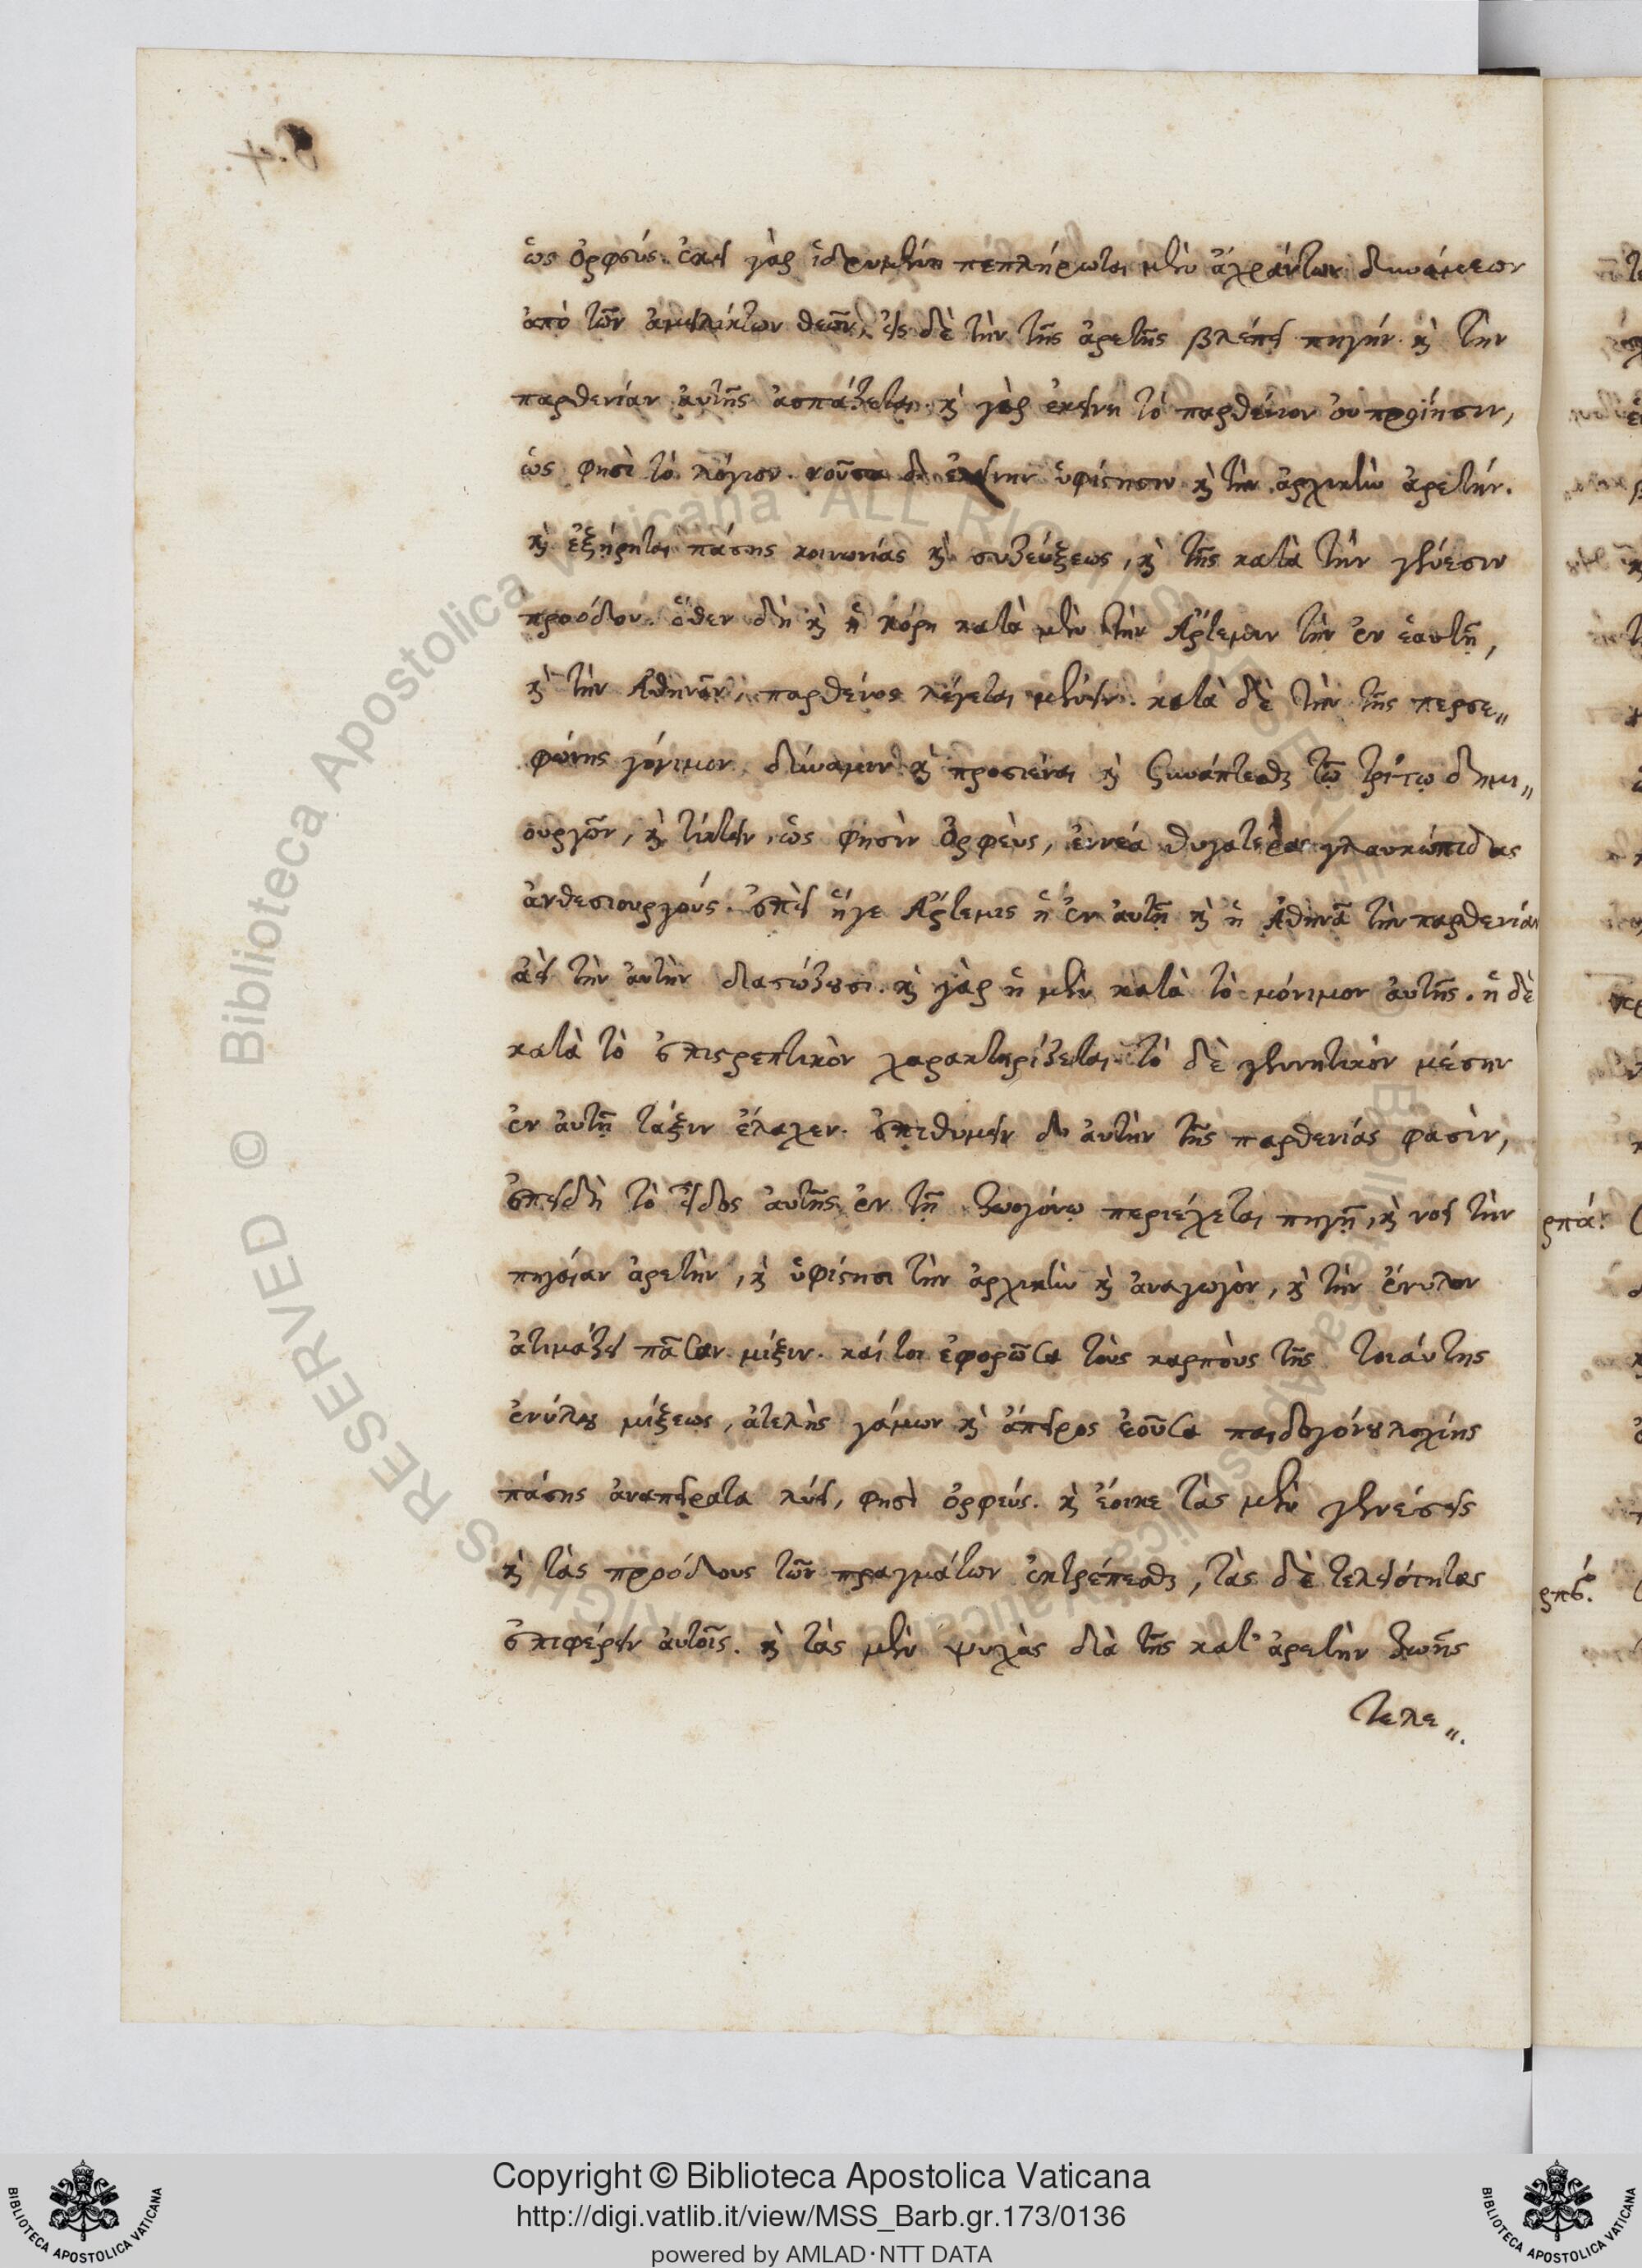 ὡς ὀρφεύς. ἐκεῖ γὰρ ἱδρυμένη πεπλήρωται μὲν ἀχράντων δυνάμεων
ἀπὸ τῶν ἀμειλίκτων θεῶν, εἰς δὲ τὴν τῆς ἀρετῆς βλέπει πηγήν. καὶ τὴν
παρθενίαν αὐτῆς ἀσπάζεται. καὶ γὰρ ἐκείνη τὸ παρθένιον οὐ προΐησιν,
ὡς φησὶ τὸ λόγιον. νοοῦσα δὲ ἐκείνην ὑφίστησιν καὶ τὴν ἀρχικὴν ἀρετήν.
καὶ ἐξήρηται πάσης κοινωνίας καὶ συζεύξεως, καὶ τῆς κατὰ τὴν γένεσιν
προόδου. ὅθεν δὴ καὶ ἡ κόρη κατὰ μὲν τὴν Ἄρτεμιν τὴν ἐν ἑαυτῇ,
καὶ τὴν Ἀθηνᾶν, παρθένος λέγεται μένειν. κατὰ δὲ τὴν τῆς περσε„
φόνης γόνιμον δύναμιν καὶ προσιέναι καὶ συνάπτεσθαι τῷ τρίτῳ δημι„
ουργῷ, καὶ τίκτειν, ὡς φησὶν Ὀρφεὺς, ἐννέα θυγατέρας γλαυκώπιδας
ἀνθεσιουργούς. ἐπεὶ ἥγε Ἄρτεμις ἡ ἐν αὐτῇ καὶ ἡ Ἀθηνᾶ τὴν παρθενίαν
ἀεὶ τὴν αὐτὴν διασώζουσι. καὶ γὰρ ἡ μὲν κατὰ τὸ μόνιμον αὐτῆς. ἡ δὲ
κατὰ τὸ ἐπιστρεπτικὸν χαρακτηρίζεται. τὸ δὲ γεννητικὸν μέσην
ἐν αὐτῇ τάξιν ἔλαχεν. ἐπιθυμεῖν δὲ αὐτὴν τῆς παρθενίας φασὶν,
ἐπειδὴ τὸ εἶδος αὐτῆς ἐν τῇ ζωογόνῳ περιέχεται πηγῇ, καὶ νοεῖ τὴν
πηγαίαν ἀρετὴν, καὶ ὑφίστησι τὴν ἀρχικὴν καὶ ἀναγωγὸν, καὶ τὴν ἔνυλον
ἀτιμάζει πᾶσαν μίξιν. καίτοι ἐφορῶσα τοὺς καρποὺς τῆς τοιαύτης
ἐνύλου μίξεως, ἀτελὴς γάμων καὶ ἄπειρος ἐοῦσα παιδογόνου λοχίης
πάσης ἀναπείρατα λύει, φησὶ ὀρφεύς. καὶ ἔοικε τὰς μὲν γεννέσεις
καὶ τὰς προόδους τῶν πραγμάτων ἐκτρέπεσθαι, τὰς δὲ τελειότητας
ἐπιφέρειν αὐτοῖς. καὶ τὰς μὲν ψυχὰς διὰ τῆς κατ' ἀρετὴν ζωῆς
τελε„.
ρπά.
ρπβ.
Copyright © Biblioteca Apostolica Vaticana
http://digi.vatlib.it/view/MSS_Barb.gr.173/0136
powered by AMLAD·NTT DATA
BIBLIOTECA APOSTOLICA VATICANA
BIBLIOTECA APOSTOLICA VATICANA